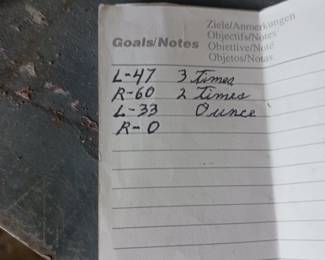 Ziele/Anmerkungen
Goals/Notes Objectifs/Notes
Obiettivi/Note
Objetos/Notas
L-47 3 times
R-60 2 times
L-33 Ounce
R-0